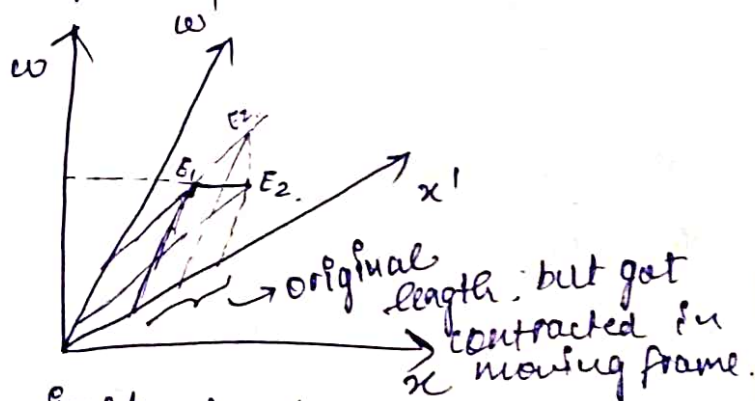 w
w'
E1
E2.
x'
→ original
length; but got
contracted in
moving frame.
x